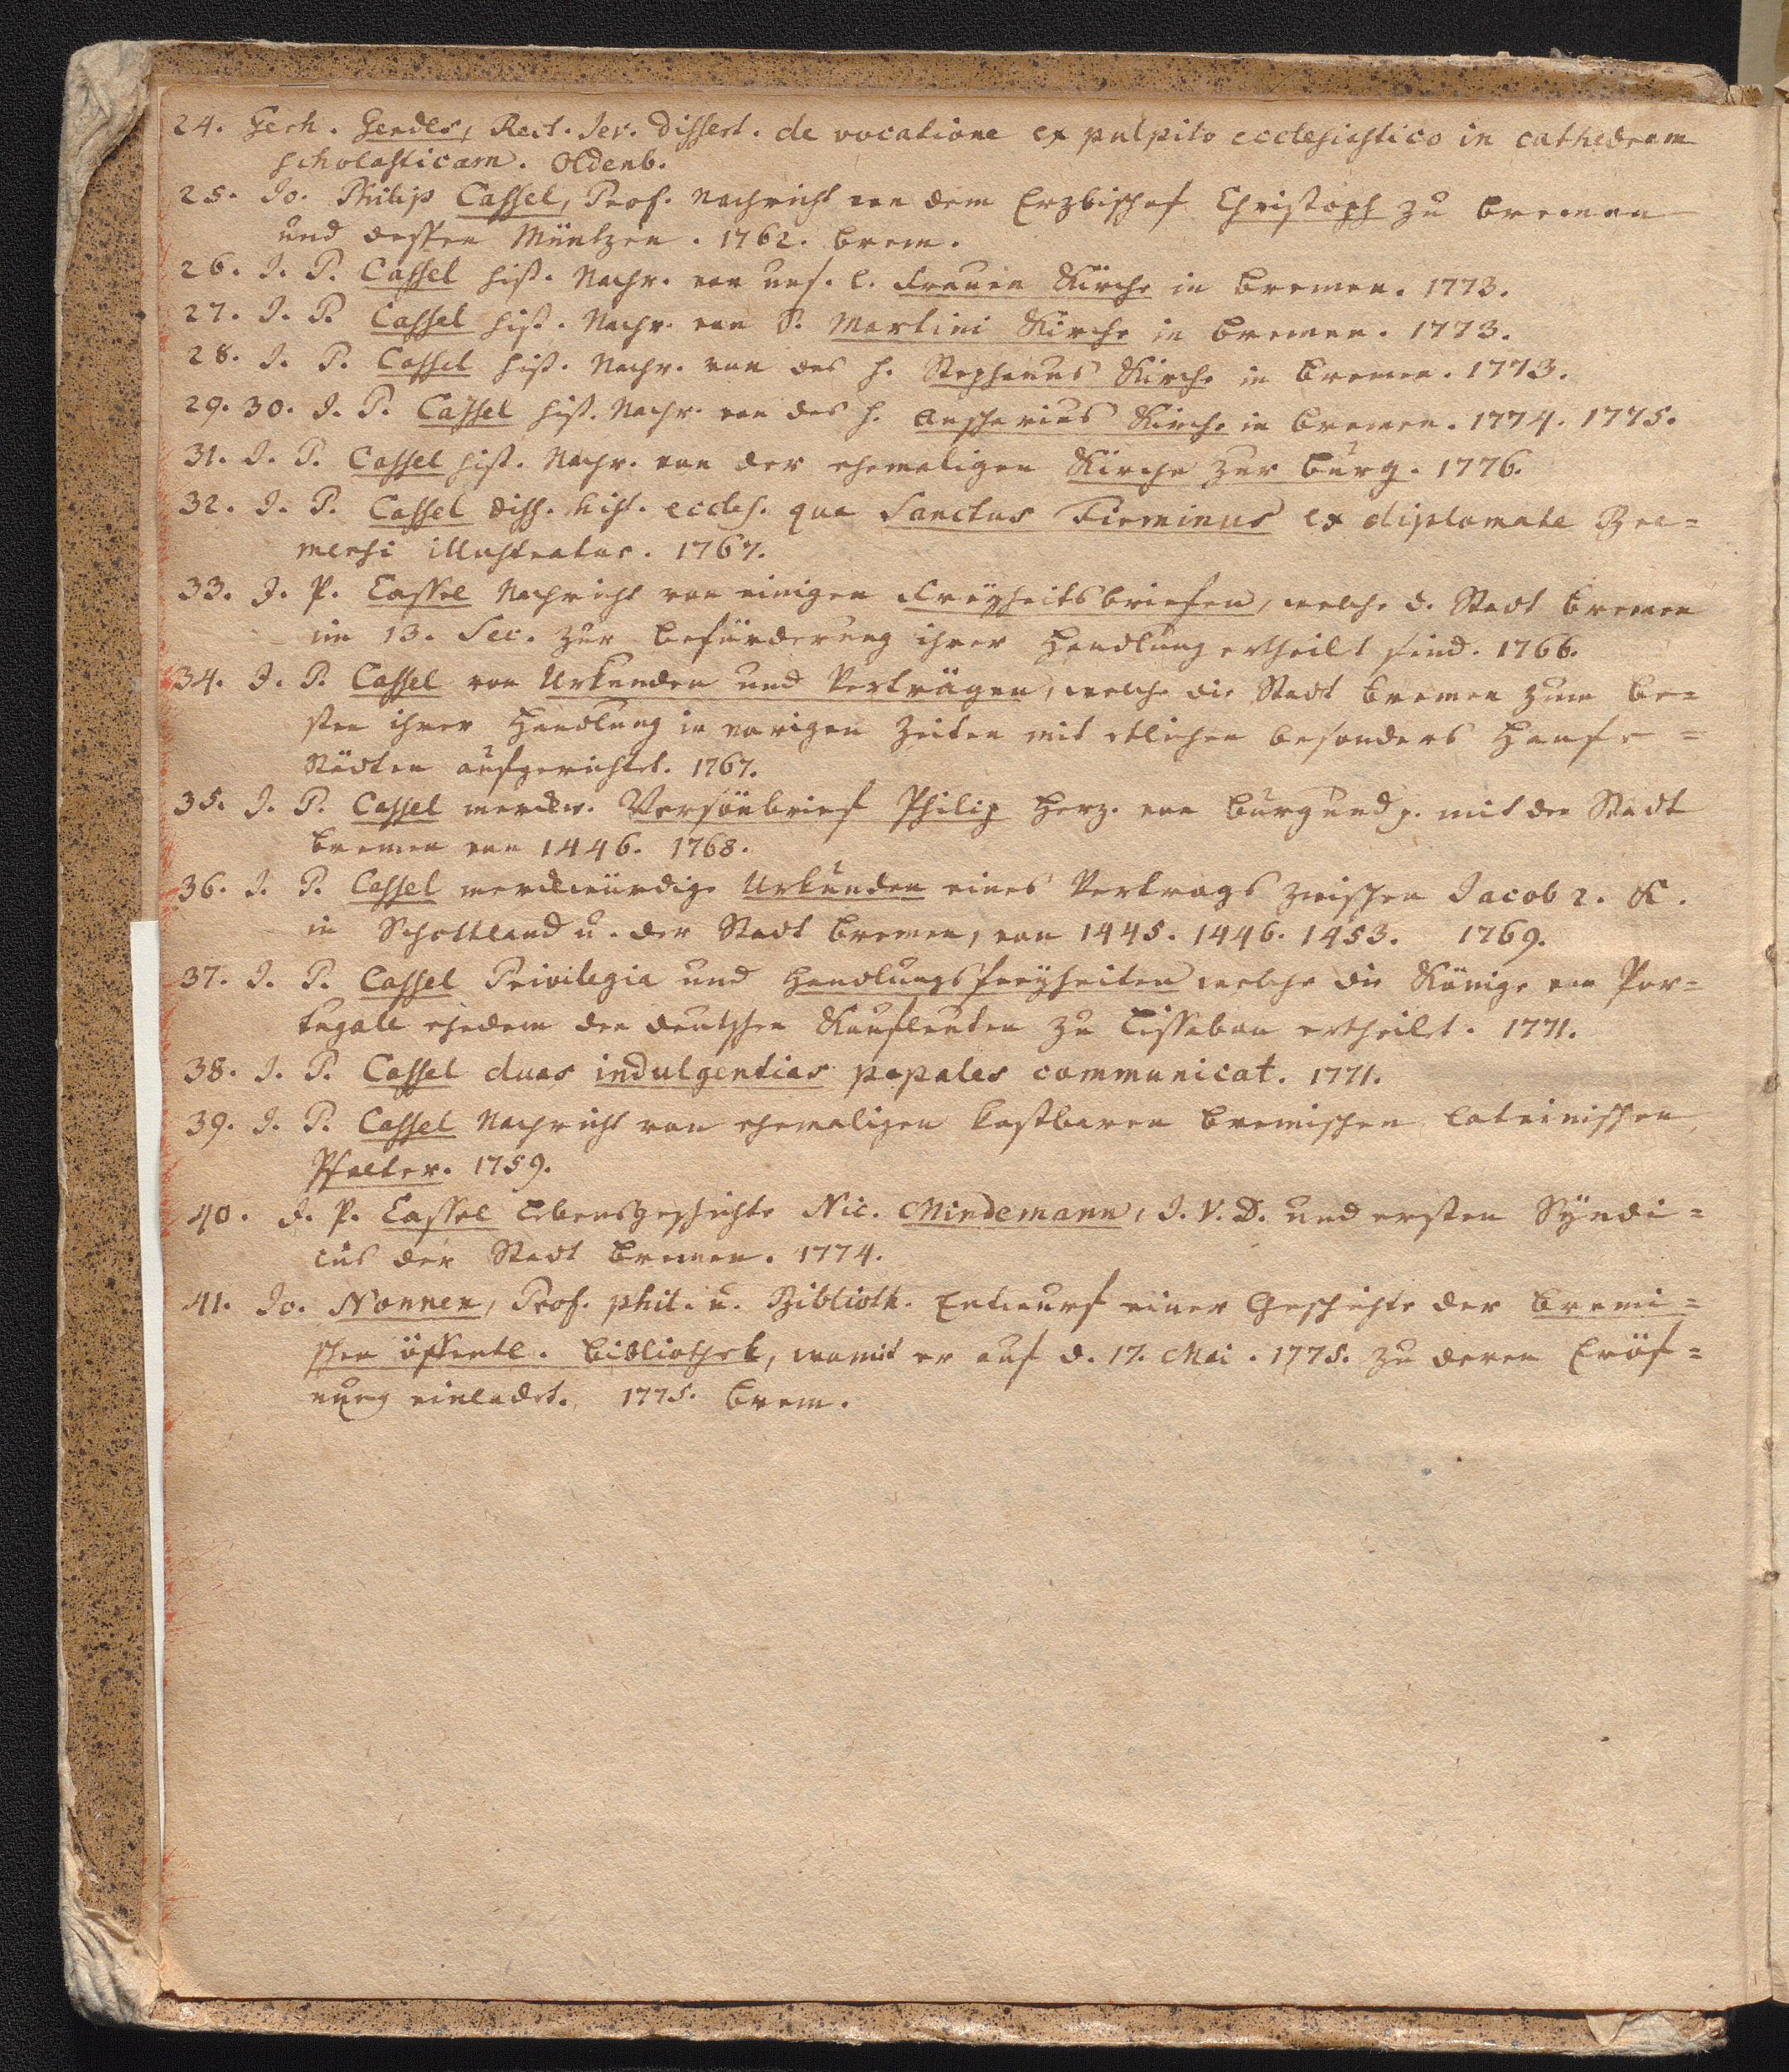 24. Gerh. Gerdes, Rect. Jev. Dissert. de vocatione ex pulpito ecclesiastico in cathedram
scholasticam. Oldenb.
25. Jo. Philip Cassel, Prof. Nachricht von dem Erzbischof Christoph zu Bremen
und dessen Müntzen. 1762. Brem.
26. J. P. Cassel hist. Nachr. von uns. l. Frauen Kirche in Bremen. 1773.
27. J. P. Cassel hist. Nachr. von S. Martini Kirche in Bremen. 1773.
28. J. P. Cassel hist. Nachr. von des h. Stephanus Kirche in Bremen. 1773.
29. 30. J. P. Cassel hist. Nachr. von des h. Anscharius Kirche in Bremen. 1774. 1775.
31. J. P. Cassel hist. Nachr. von der ehemaligen Kirche zur Burg. 1776.
32. J. P. Cassel Diss. hist. eccles. qua Sanctus Firminus ex diplomate Bre=
mensi illustratur. 1767.
33. J. P. Cassel Nachricht von einigen Freyheitsbriefen, welche d. Stadt Bremen
im 13. Sec. zur Befürderung ihrer Handlung ertheilt sind. 1766.
34. J. P. Cassel von Urkunden und Verträgen, welche die Stadt Bremen zum Be=
sten ihrer Handlung in vorigen Zeiten mit etlichen besonders Hanse=
Städten aufgerichtet. 1767.
35. J. P. Cassel merckw. Versönbrief Philip Herz. von Burgund p. mit der Stadt
Bremen von 1446. 1768.
36. J. P. Cassel merckwürdige Urkunden eines Vertrags zwischen Jacob 2. K.
in Schottland u. der Stadt Bremen, von 1445. 1446. 1453. 1769.
37. J. P. Cassel Privilegia und Handlungsfreyheiten welche die Könige von Por=
tugall ehedem den deutschen Kaufleuten zu Lissabon ertheilet. 1771.
38. J. P. Cassel duas indulgentias papales communicat. 1771.
39. J. P. Cassel Nachricht von ehemaligen kostbaren Bremischen lateinischen
Psalter. 1759.
40. J. P. Cassel Lebensgeschichte Nic. Mindemann, J. V. D. und ersten Syndi=
cus der Stadt Bremen. 1774.
41. Jo. Nonnen, Prof. phil. u. Biblioth. Entwurf einer Geschichte der Bremi=
schen öffentl. Bibliothek, womit er auf d. 17. Mai. 1775. zu deren Eröf=
nung einladet. 1775. Brem.